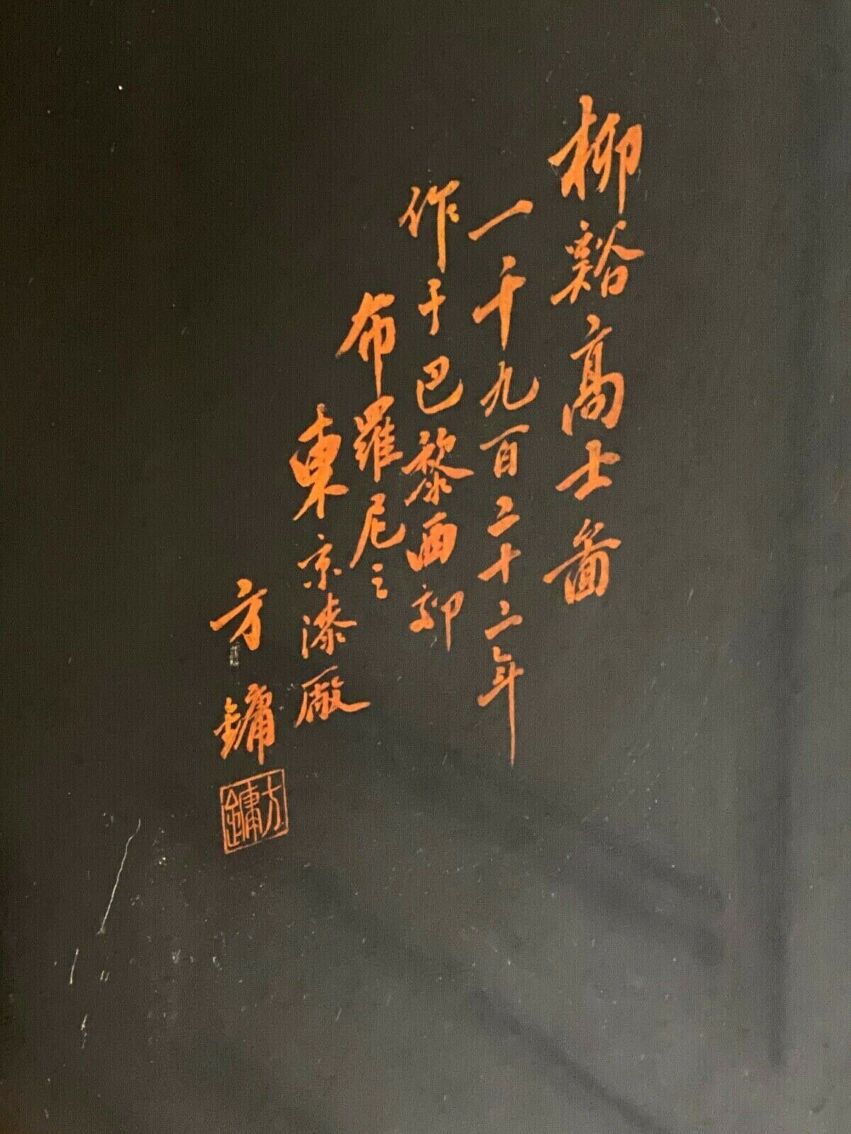 柳谿高士啚
一千九百二十二年
作于巴黎西郊
布羅尼之
東京漆厰
方鏞
方鏞